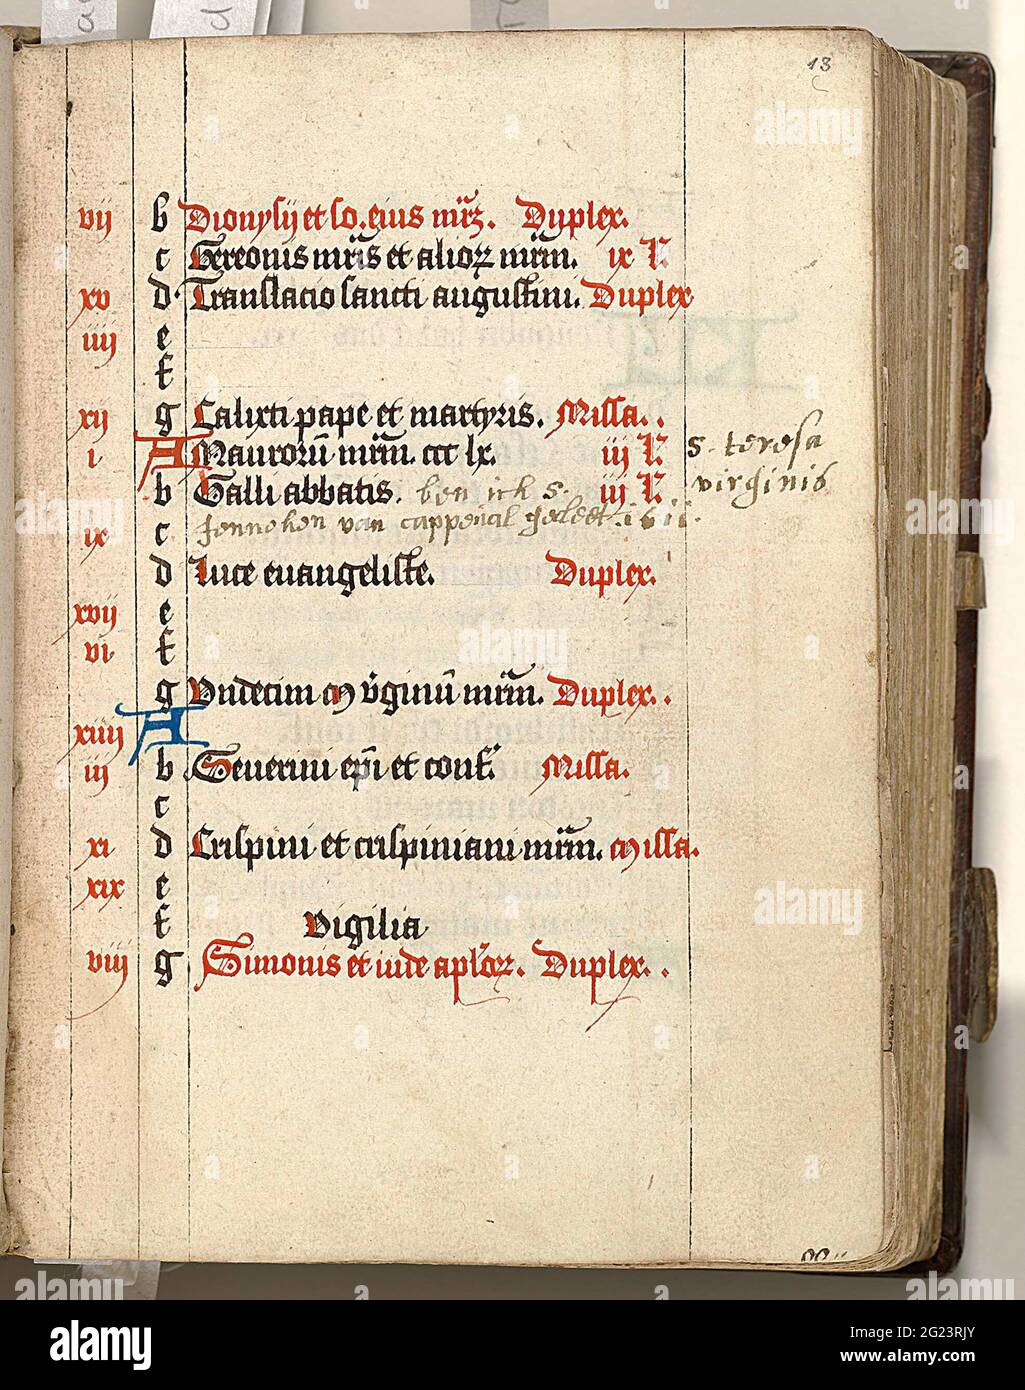 13
vij b Dionysij et so. eius mr̄z. Duplex.
c Gereonis mr̄is et alioꝝ mr̄m. ix L
xv d Translacio sancti augustini. Duplex
iiij e
f
xij g Calixti pape et martyris. Missa.
i A Maurorū mr̄m. ccc lx. iij L s. teresa
b Galli abbatis. ben ick s. iij L virginis
ix c Jenneken van cappendal geleet. 1611.
d Luce euangeliste. Duplex.
xvij e
vi f
g Vndecim m v̄ginū mr̄m. Duplex.
xiiij A
iij b Seuerini ep̄i et conf. Missa.
c
xi d Crispini et crispiniani mr̄m. missa.
xix e
f Vigilia
viij g Simonis et iude apl̄oꝝ. Duplex.
alamy
Image ID: 2G23RJY
www.alamy.com